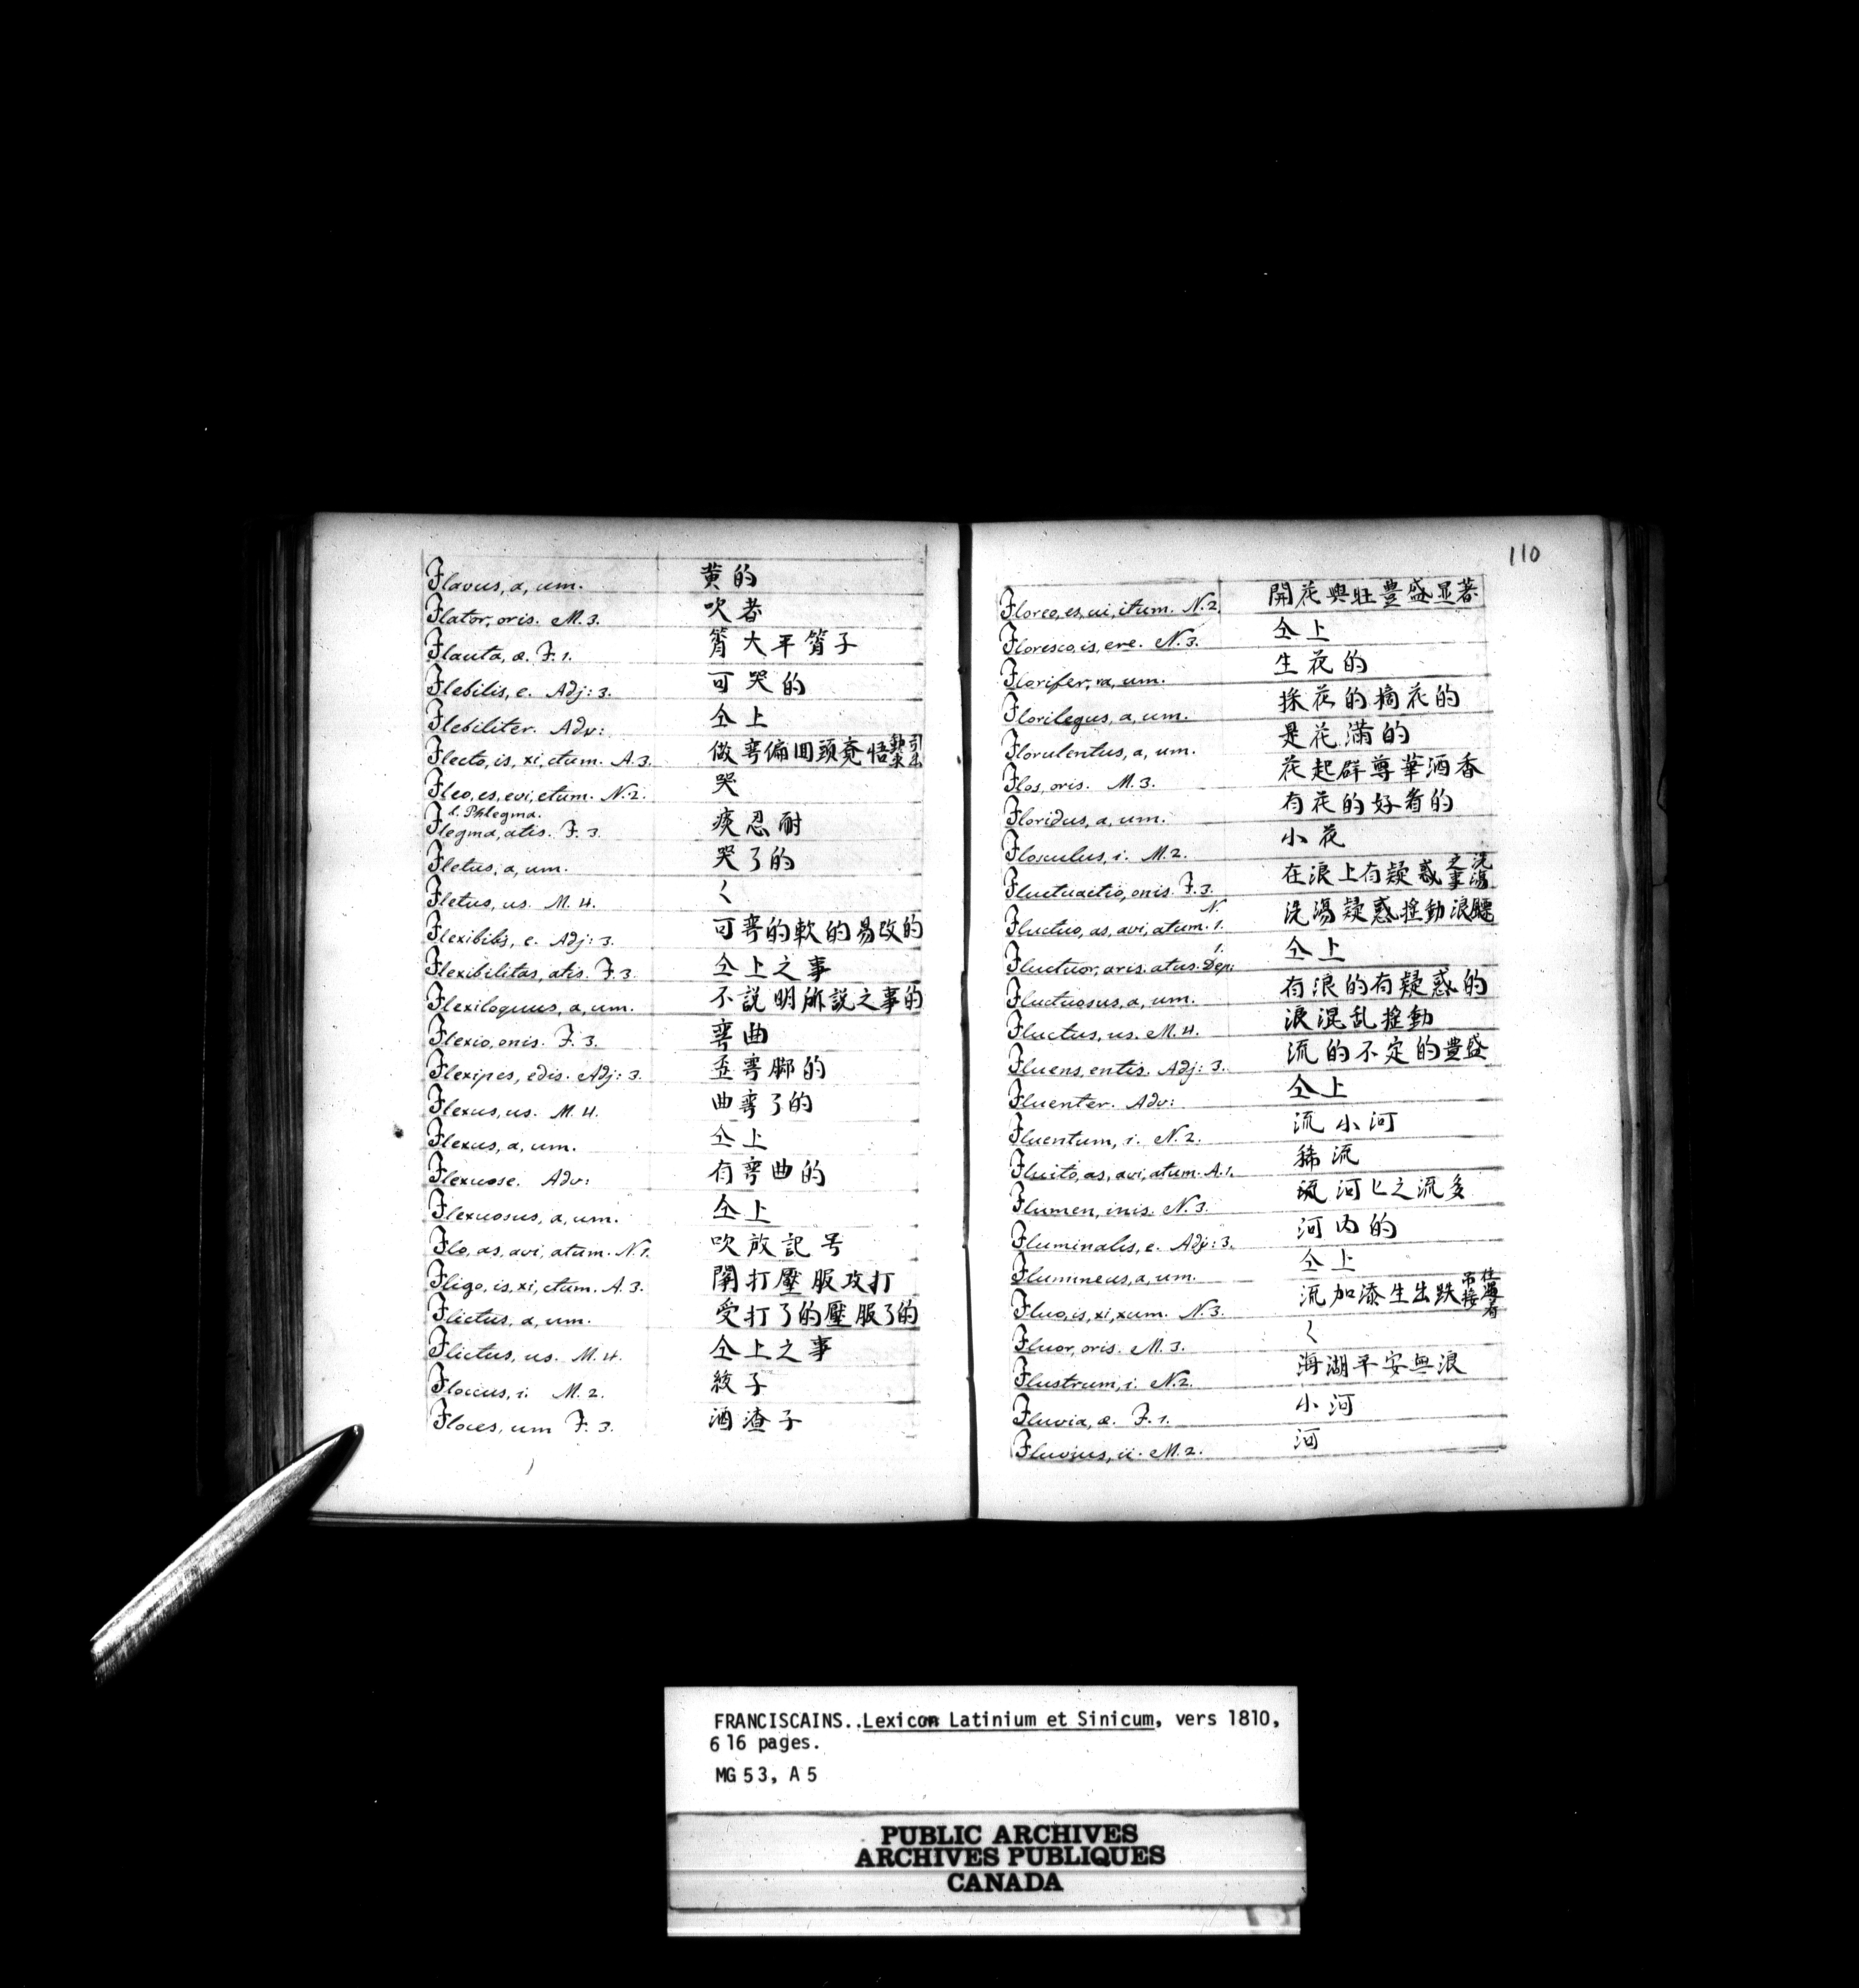 Flavus, a, um. 黄的
Flator, oris. M. 3. 吹者
Flauta, æ. F. 1. 簫大平簫子
Flebilis, e. Adj: 3. 可哭的
Flebiliter. Adv: 仝上
Flecto, is, xi, ctum. A. 3. 做弯偏囬頭
Fleo, es, evi, etum. N. 2. 哭
l. Phlegma.
Flegma, atis. F. 3. 痰忍耐
Fletus, a, um. 哭了的
Fletus, us. M. 4. 〱
Flexibilis, e. Adj: 3. 可弯的軟的易改的
Flexibilitas, atis. F. 3. 仝上之事
Flexiloquus, a, um. 不説明所説之事的
Flexio, onis. F. 3. 弯曲
Flexipes, edis. Adj: 3. 歪弯脚的
Flexus, us. M. 4. 曲弯了的
Flexus, a, um. 仝上
Flexuose. Adv: 有弯曲的
Flexuosus, a, um. 仝上
Flo, as, avi, atum. N. 1. 吹放記号
Fligo, is, xi, ctum. A. 3. 打壓服攻打
Flictus, a, um. 受打了的壓服了的
Flictus, us. M. 4. 仝上之事
Floccus, i. M. 2. 子
Floces, um F. 3. 酒渣子
110
Floreo, es, ui, itum. N. 2. 開花興旺豊盛显著
Floresco, is, ere. N. 3. 仝上
Florifer, ra, um. 生花的
Florilegus, a, um. 採花的摘花的
Florulentus, a, um. 是花滿的
Flos, oris. M. 3. 花起群尊華酒香
Floridus, a, um. 有花的好看的
Flosculus, i. M. 2. 小花
Fluctuactio, onis. F. 3. 在浪上有疑惑之事
Fluctuo, as, avi, atum. N. 1. 洗蕩疑惑搖動浪
Fluctuor, aris. atus. Dep: 1. 仝上
Fluctuosus, a, um. 有浪的有疑惑的
Fluctus, us. M. 4. 浪混乱搖動
Fluens, entis. Adj: 3. 流的不定的豊盛
Fluenter. Adv: 仝上
Fluentum, i. N. 2. 流小河
Fluito, as, avi, atum. A. 1. 流
Flumen, inis. N. 3. 流河匕之流多
Fluminalis, e. Adj: 3. 河内的
Flumineus, a, um. 仝上
Fluo, is, xi, xum. N. 3. 流加添生出跌
Fluor, oris. M. 3. 〱
Flustrum, i. N. 2. 海湖平安無浪
Fluvia, æ. F. 1. 小河
Fluvius, ii. M. 2. 河
FRANCISCAINS..Lexicon Latinium et Sinicum, vers 1810,
616 pages.
MG 53, A 5
PUBLIC ARCHIVES
ARCHIVES PUBLIQUES
CANADA